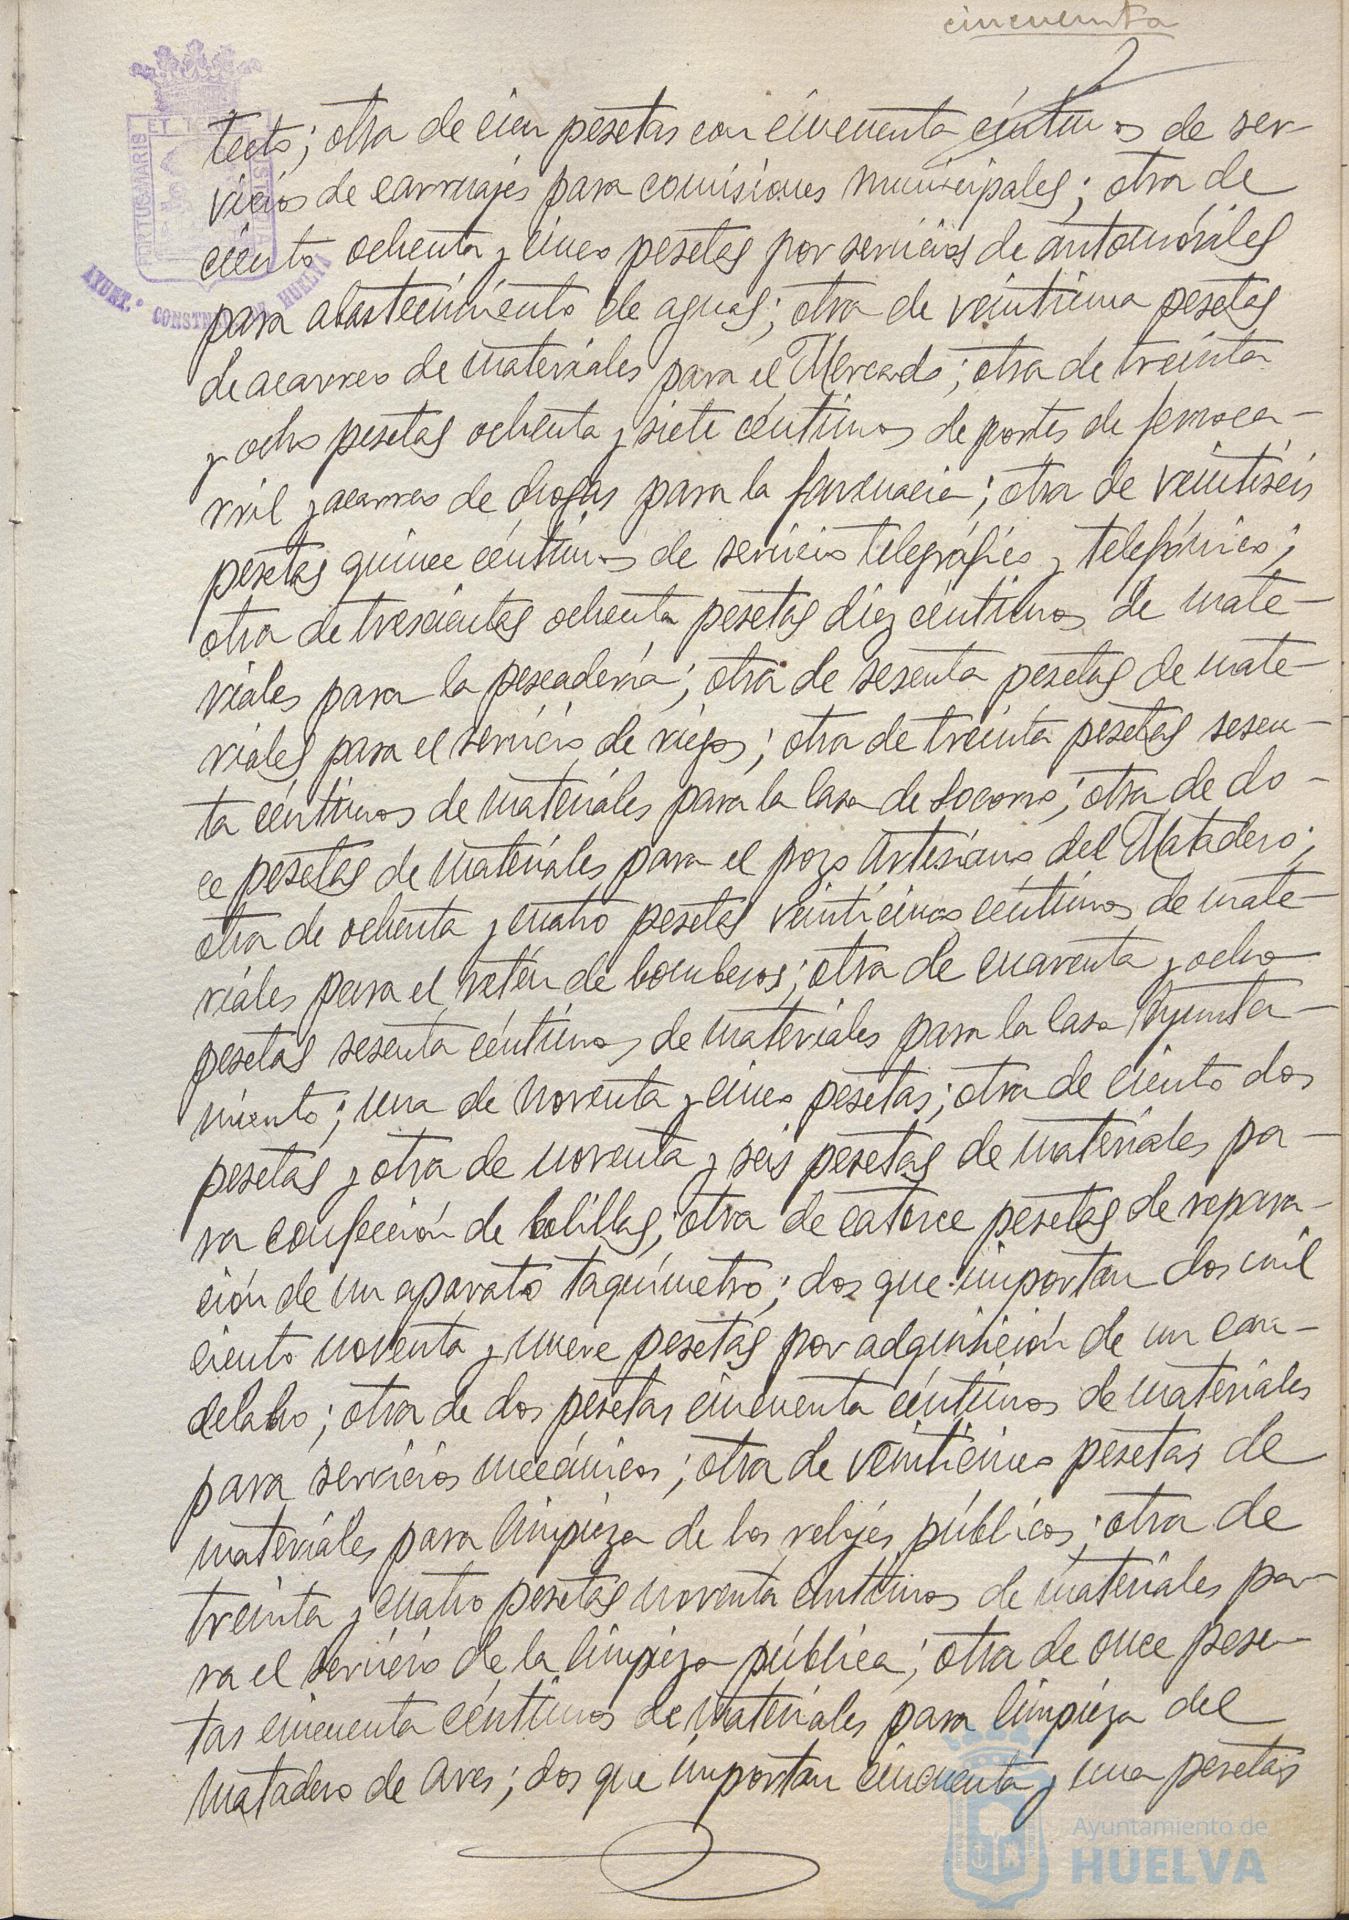 cincuenta
tecto; otra de cien pesetas con cincuenta céntimos de ser-
vicios de carruajes para comisiones municipales; otra de
ciento ochenta y cinco pesetas por servicios de automóviles
para abastecimiento de aguas; otra de veintiuna pesetas
de acarreo de materiales para el Mercado; otra de treinta
y ocho pesetas ochenta y siete céntimos de portes de ferroca-
rril y acarreo de drogas para la farmacia; otra de veintiséis
pesetas quince céntimos de servicio telegráfico y telefónico;
otra de trescientas ochenta pesetas diez céntimos de mate-
riales para la pescadería; otra de sesenta pesetas de mate-
riales para el servicio de riegos; otra de treinta pesetas sesen-
ta céntimos de materiales para la Casa de Socorro; otra de do-
ce pesetas de materiales para el pozo Artesiano del Matadero;
otra de ochenta y cuatro pesetas veinticinco céntimos de mate-
riales para el retén de bomberos; otra de cuarenta y ocho
pesetas sesenta céntimos de materiales para la Casa Ayunta-
miento; una de noventa y cinco pesetas; otra de ciento dos
pesetas y otra de noventa y seis pesetas de materiales pa-
ra confección de bolillas; otra de catorce pesetas de repara-
ción de un aparato taquímetro; dos que importan dos mil
ciento noventa y nueve pesetas por adquisición de un can-
delabro; otra de dos pesetas cincuenta céntimos de materiales
para servicios mecánicos; otra de veinticinco pesetas de
materiales para limpieza de los relojes públicos; otra de
treinta y cuatro pesetas noventa céntimos de materiales pa-
ra el servicio de la limpieza pública; otra de once pese-
tas cincuenta céntimos de materiales para limpieza del
Matadero de Aves; dos que importan cincuenta y una pesetas
PORTUS MARIS ET TERRAE CUSTODIA
AYUNT.º CONSTNAL DE HUELVA
Ayuntamiento de
HUELVA